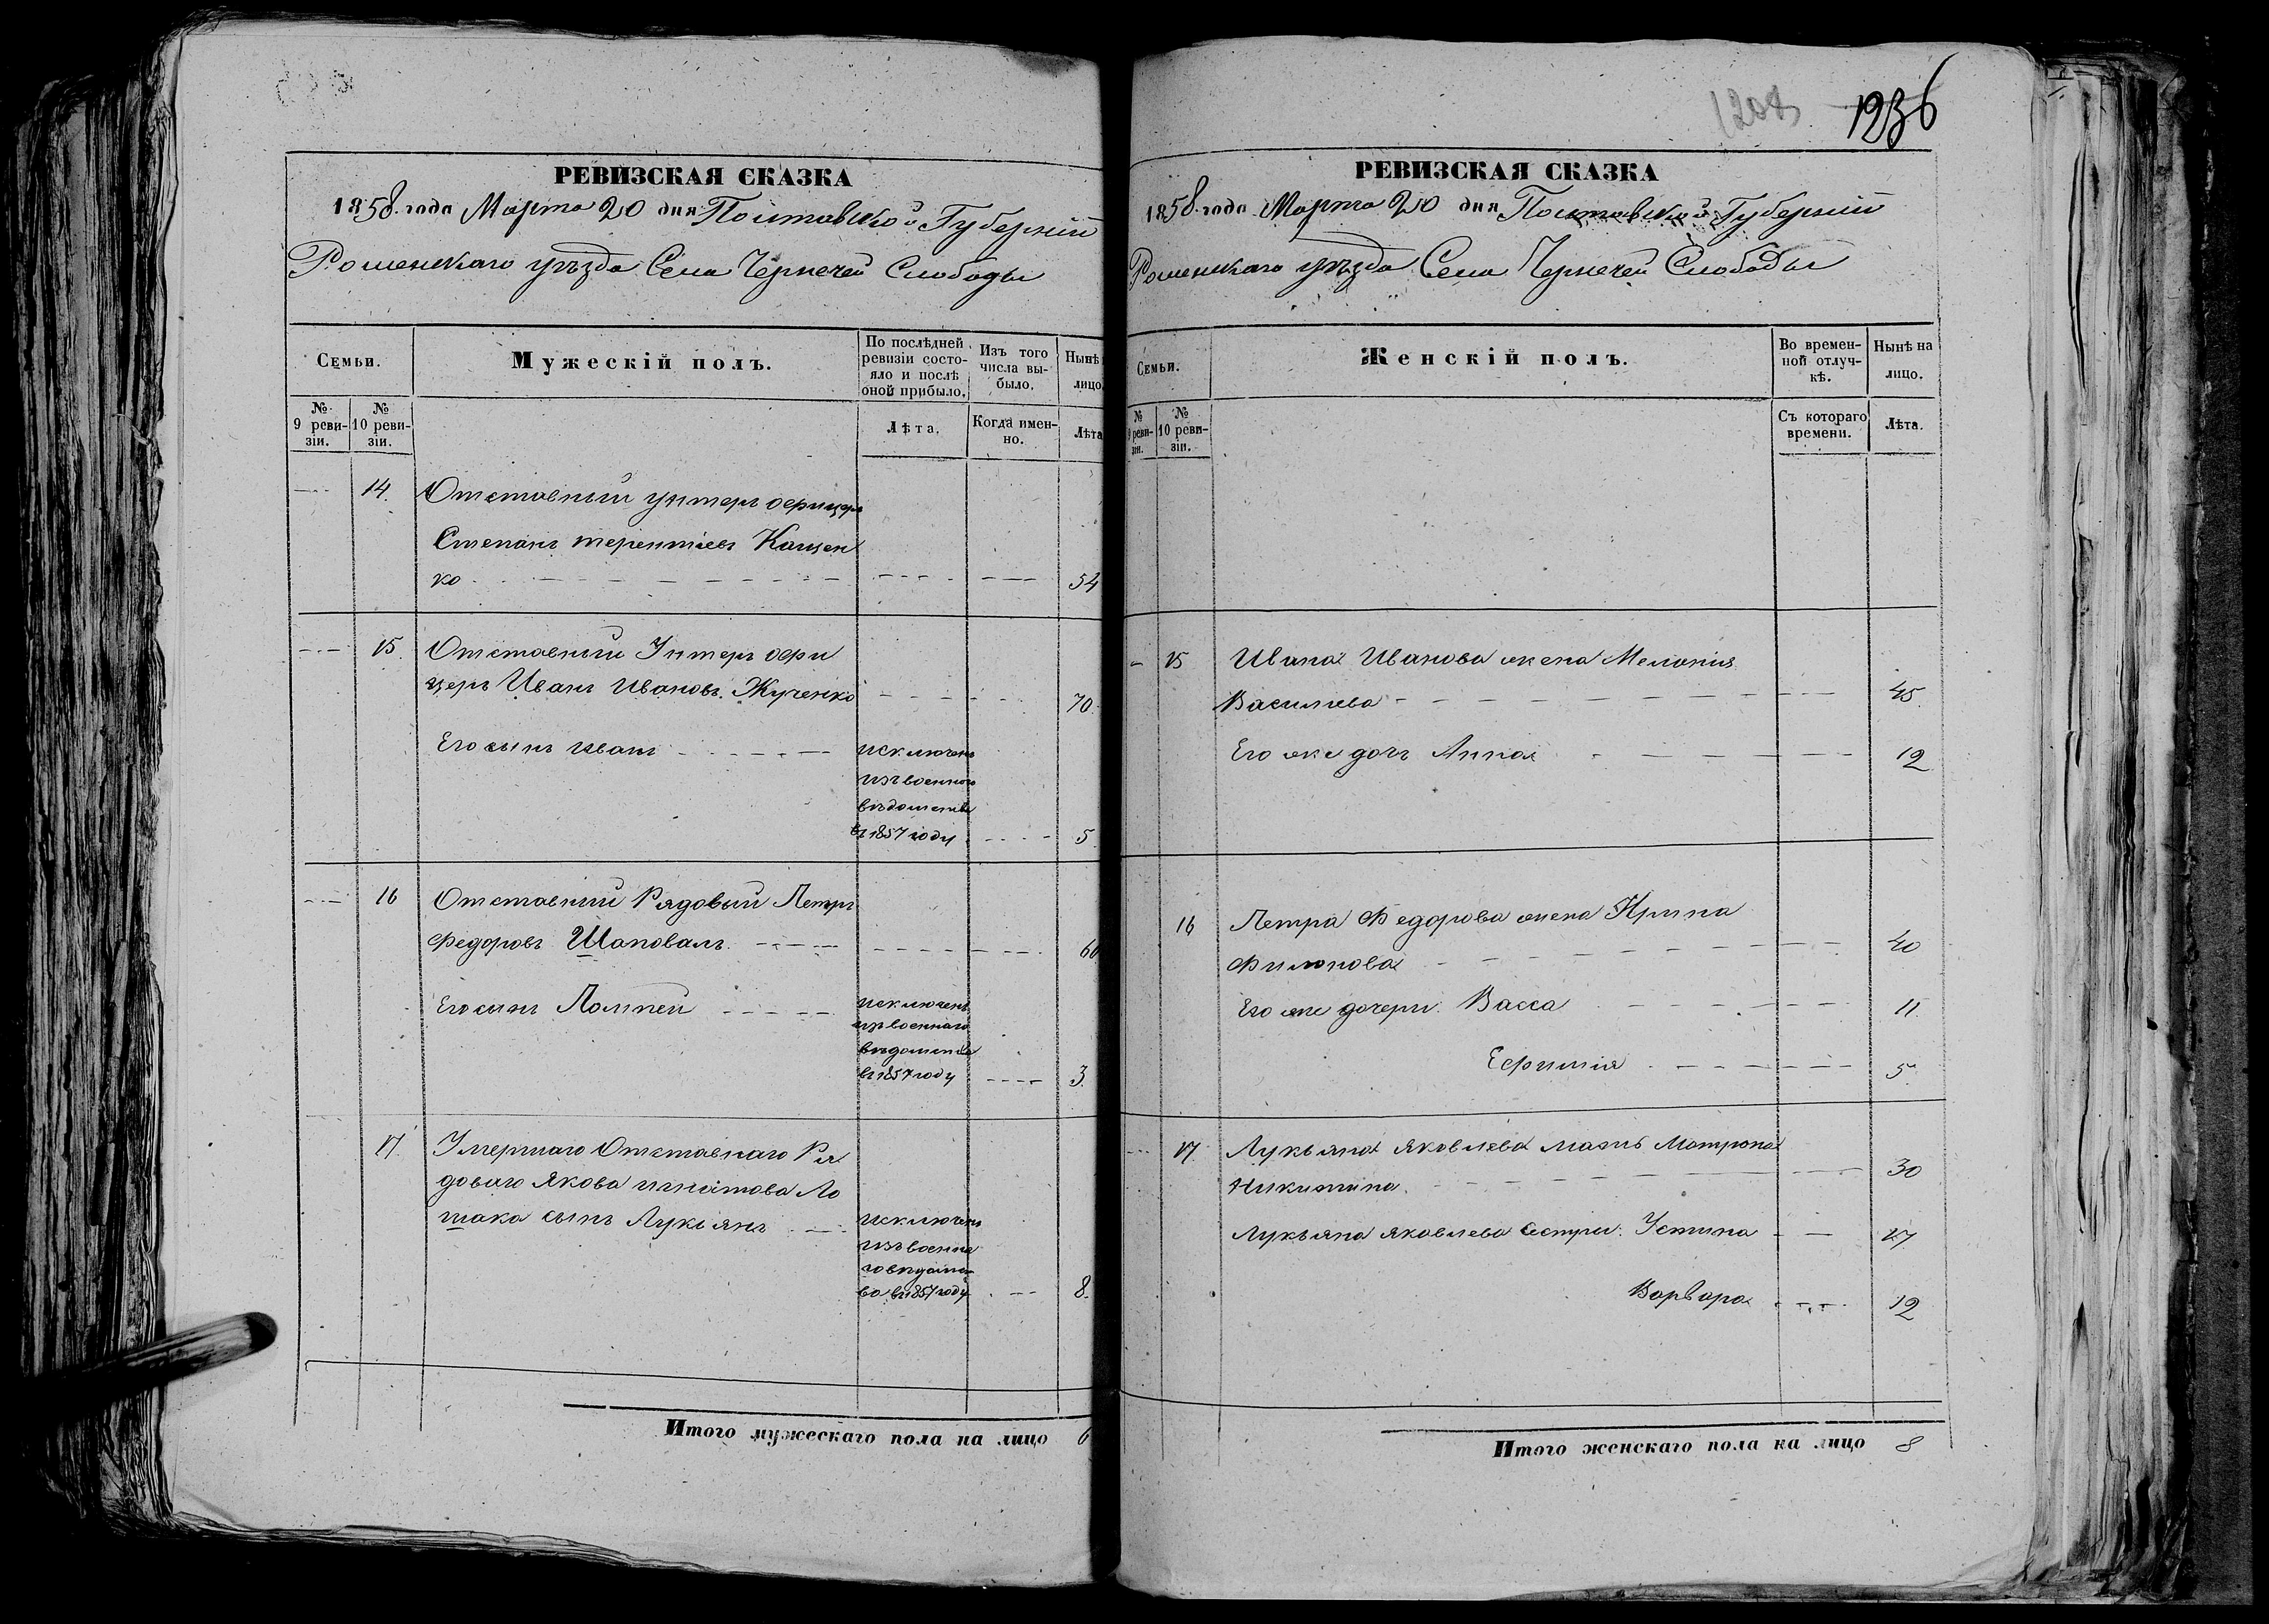 РЕВИЗСКАЯ СКАЗКА
1858 года Марта 20 дня Полтавской Губерніи
Роменскаго уѣзда Села Чернечей Слободы
Семьи.
Мужескій полъ.
По послѣдней ревизіи состо-
яло и послѣ
оной прибыло.
Изъ того
числа вы-
было.
Нынѣ
лицо.
№
9 реви-
зіи.
№
10 реви-
зіи.
Лѣта.
Когда имен-
но.
Лѣта
14. Отставный унтеръ офицеръ
Степанъ терентіевъ Кащен
ко 54
15. Отставный Унтеръ офи
церъ Иванъ Ивановъ Жученко 70
Его сынъ иванъ исключенъ
изъ военного
вѣдомства
въ 1857 году 5
16 Отставный Рядовый Петръ
Федоровъ Шаповалъ 60
Его сынъ Помпей исключенъ
изъ военнаго
вѣдомства
въ 1857 году 3.
17. Умершаго Отставнаго Ря
доваго Якова игнатова Ло
шака сынъ Лукьянъ исключенъ
изъ военна
го вѣдомст
ва въ 1857 году 8.
Итого мужескаго пола на лицо 6
1236
РЕВИЗСКАЯ СКАЗКА
1858 года Марта 20 дня Полтавской Губерніи
Роменскаго уѣзда Села Чернечей Слободы
Семьи.
Женскій полъ.
Во времен-
ной отлуч-
кѣ.
Нынѣ на
лицо.
№
9 реви-
зіи.
№
10 реви-
зіи.
Съ котораго
времени.
Лѣта.
15 Ивана Иванова жена Меланія
Василіева 45.
Его же дочь Анна 12
16 Петра Федорова жена Ирина
Филипова 40
Его же дочери Васса 11.
Ефимія 5
17 Лукьяна Яковлева мать Матрона
Никитина 30
Лукьяна Яковлева Сестры Устина 17
Варвара 12
Итого женскаго пола на лицо 8